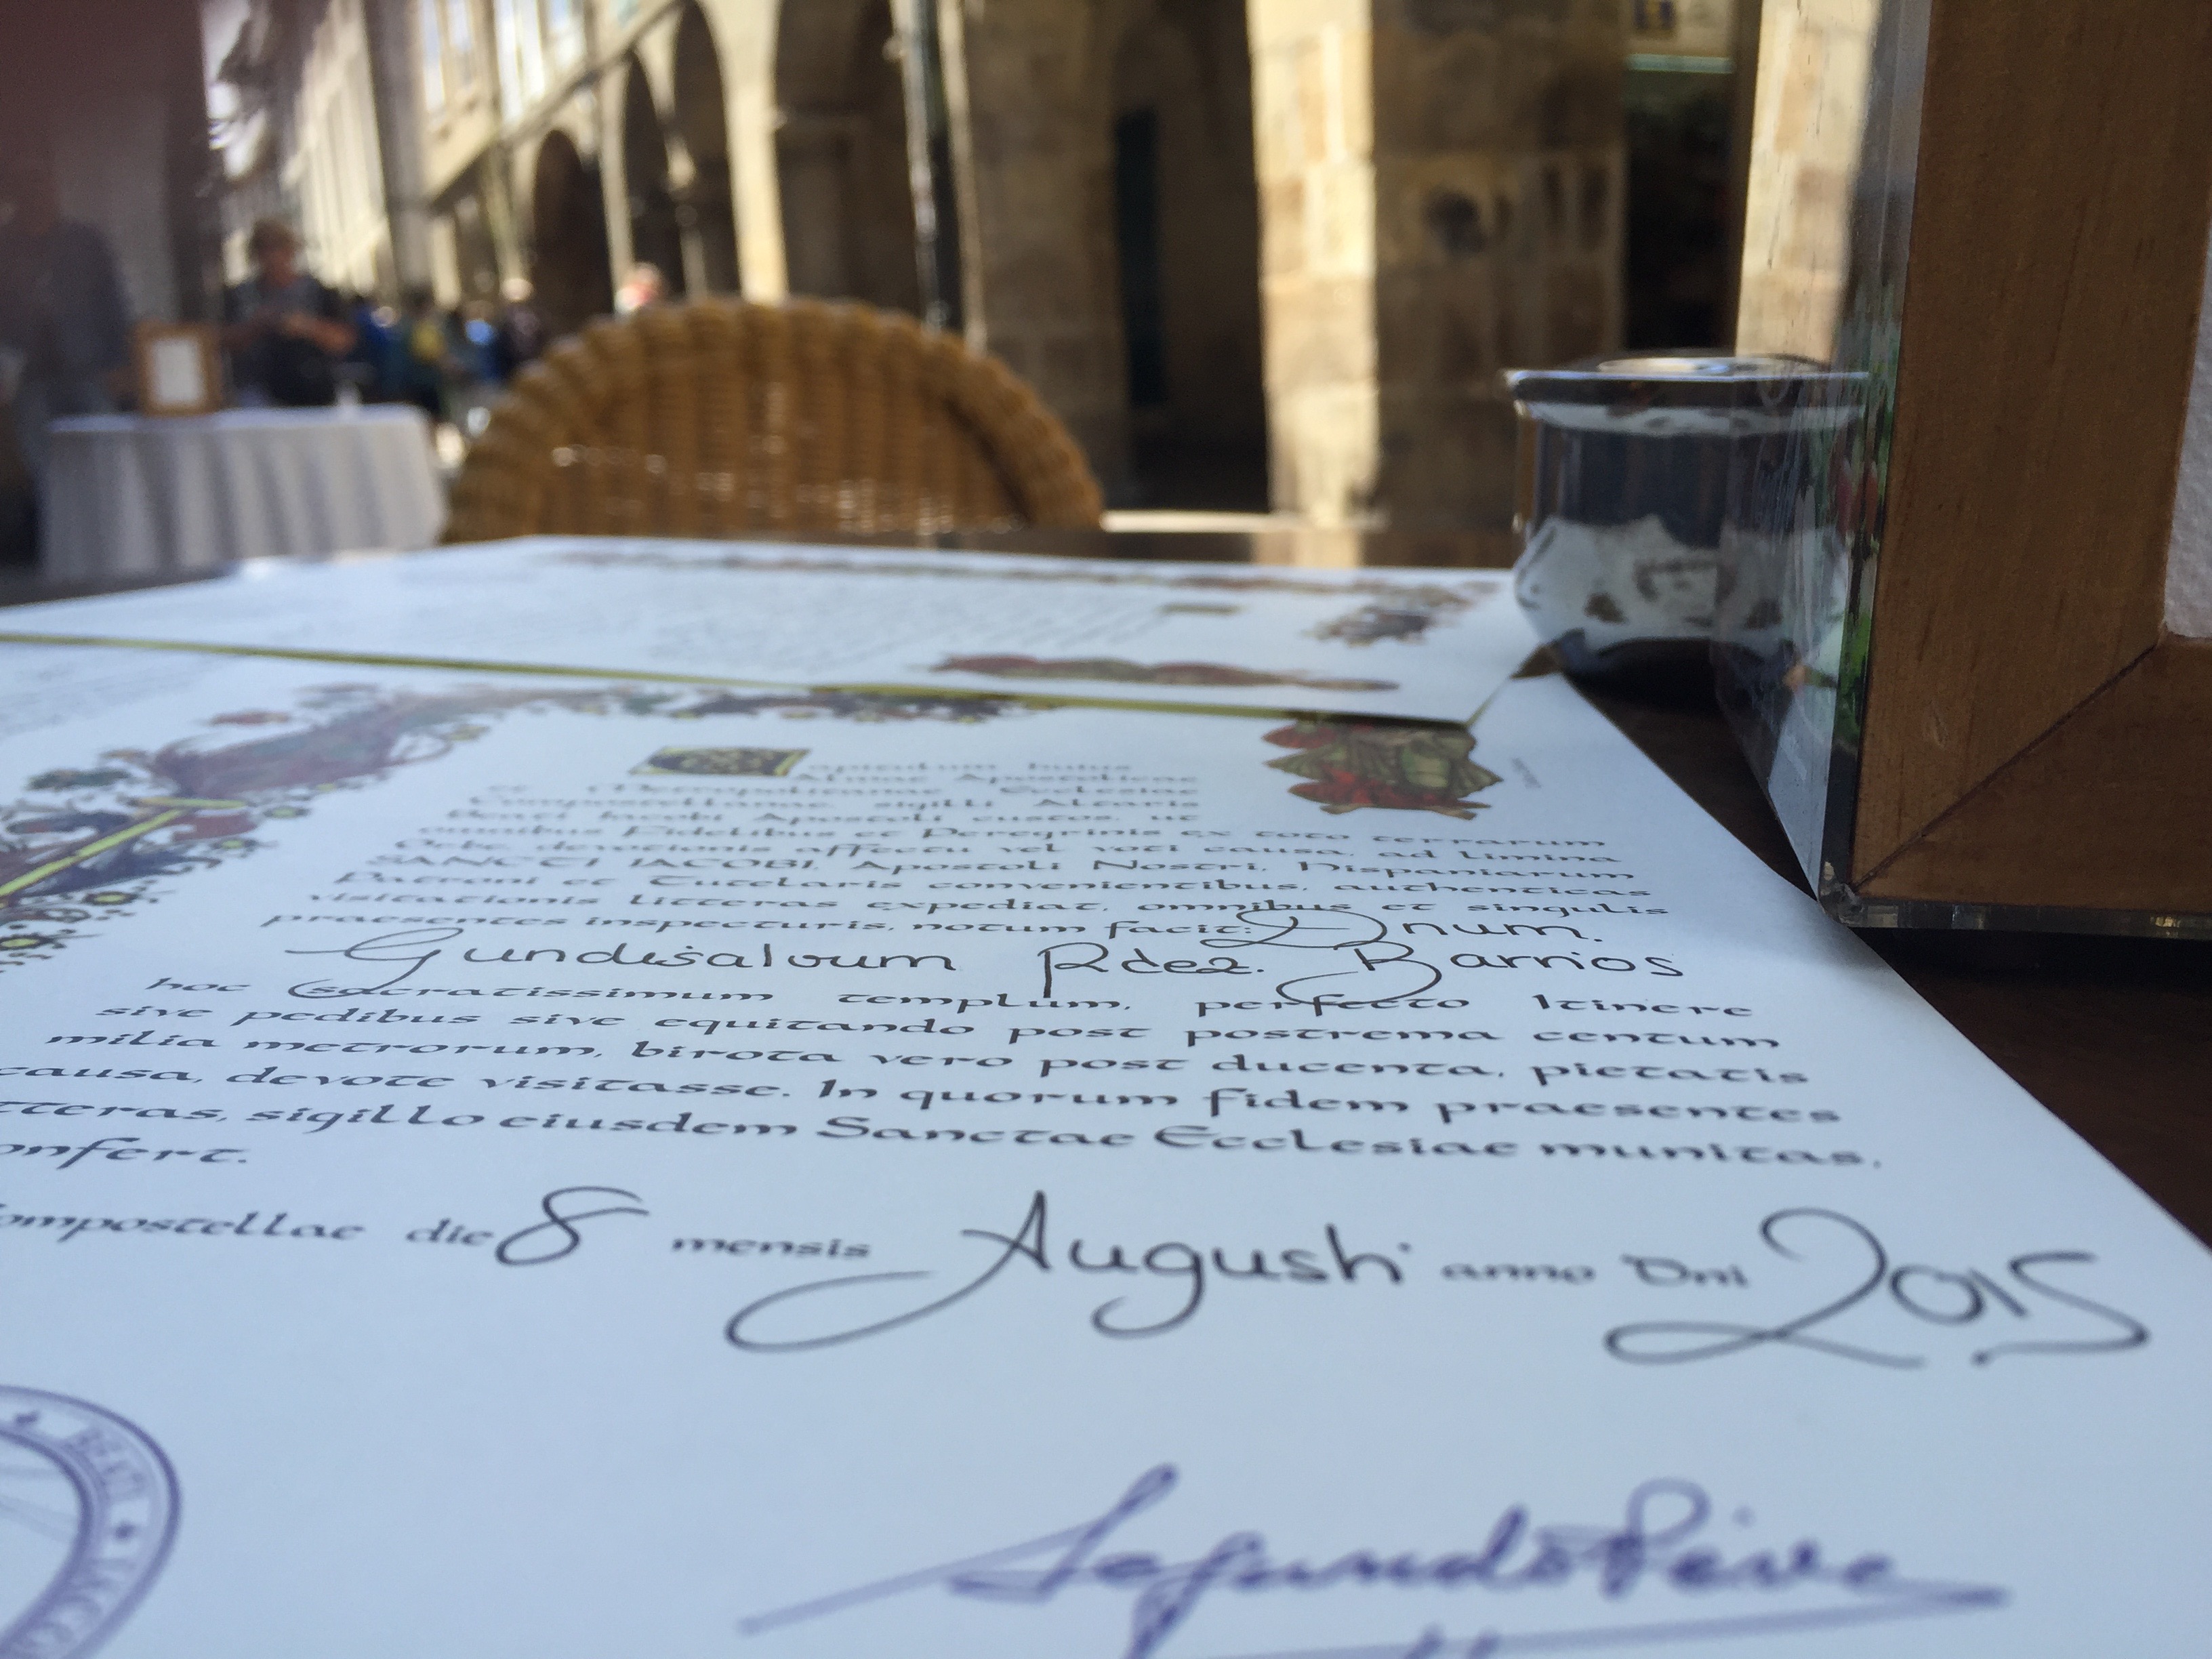 Capitulum huius
Almae Apostolicae
et Metropolitanae Ecclesiae
Compostellanae, sigilli Altaris
Beati Iacobi Apostoli custos, ut
omnibus Fidelibus et Peregrinis ex toto terrarum
Orbe, devotionis affectu vel voti causa, ad limina
SANCTI IACOBI, Apostoli Nostri, Hispaniarum
Patroni et Tutelaris convenientibus, authenticas
visitationis litteras expediat, omnibus et singulis
praesentes inspecturis, notum facit: Dnum.
Gundisalvum Rdez. Barrios
hoc sacratissimum templum, perfecto Itinere
sive pedibus sive equitando post postrema centum
milia metrorum, birota vero post ducenta, pietatis
causa, devote visitasse. In quorum fidem praesentes
tteras, sigillo eiusdem Sanctae Ecclesiae munitas,
onfert.
ompostellae die 8 mensis Augusti anno Dni 2015
BEATI IACOBI
Segundo Pérez